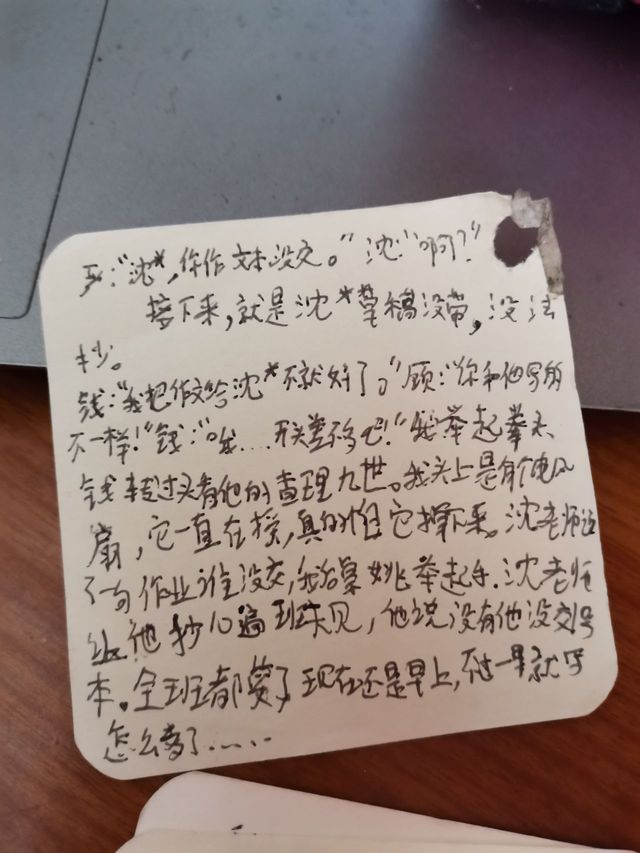 "沈*,你作文本没交。"沈:"啊?"
接下来,就是沈*草稿没带,没法
抄。
钱:"我把作文给沈*不就好了。"顾:"你和他写的
不一样!"钱:"哦....那差不多吧!"我举起拳头
钱转过头看他的查理九世。我头上是有个电风
扇,它一直在摇,真的怕它掉下来。沈老师说
了句作业谁没交,姚举起手.沈老师
让他抄10遍班规,他说没有他没交
本。全班都蒙了 现在还是早上,不过一早就写
怎么多了......